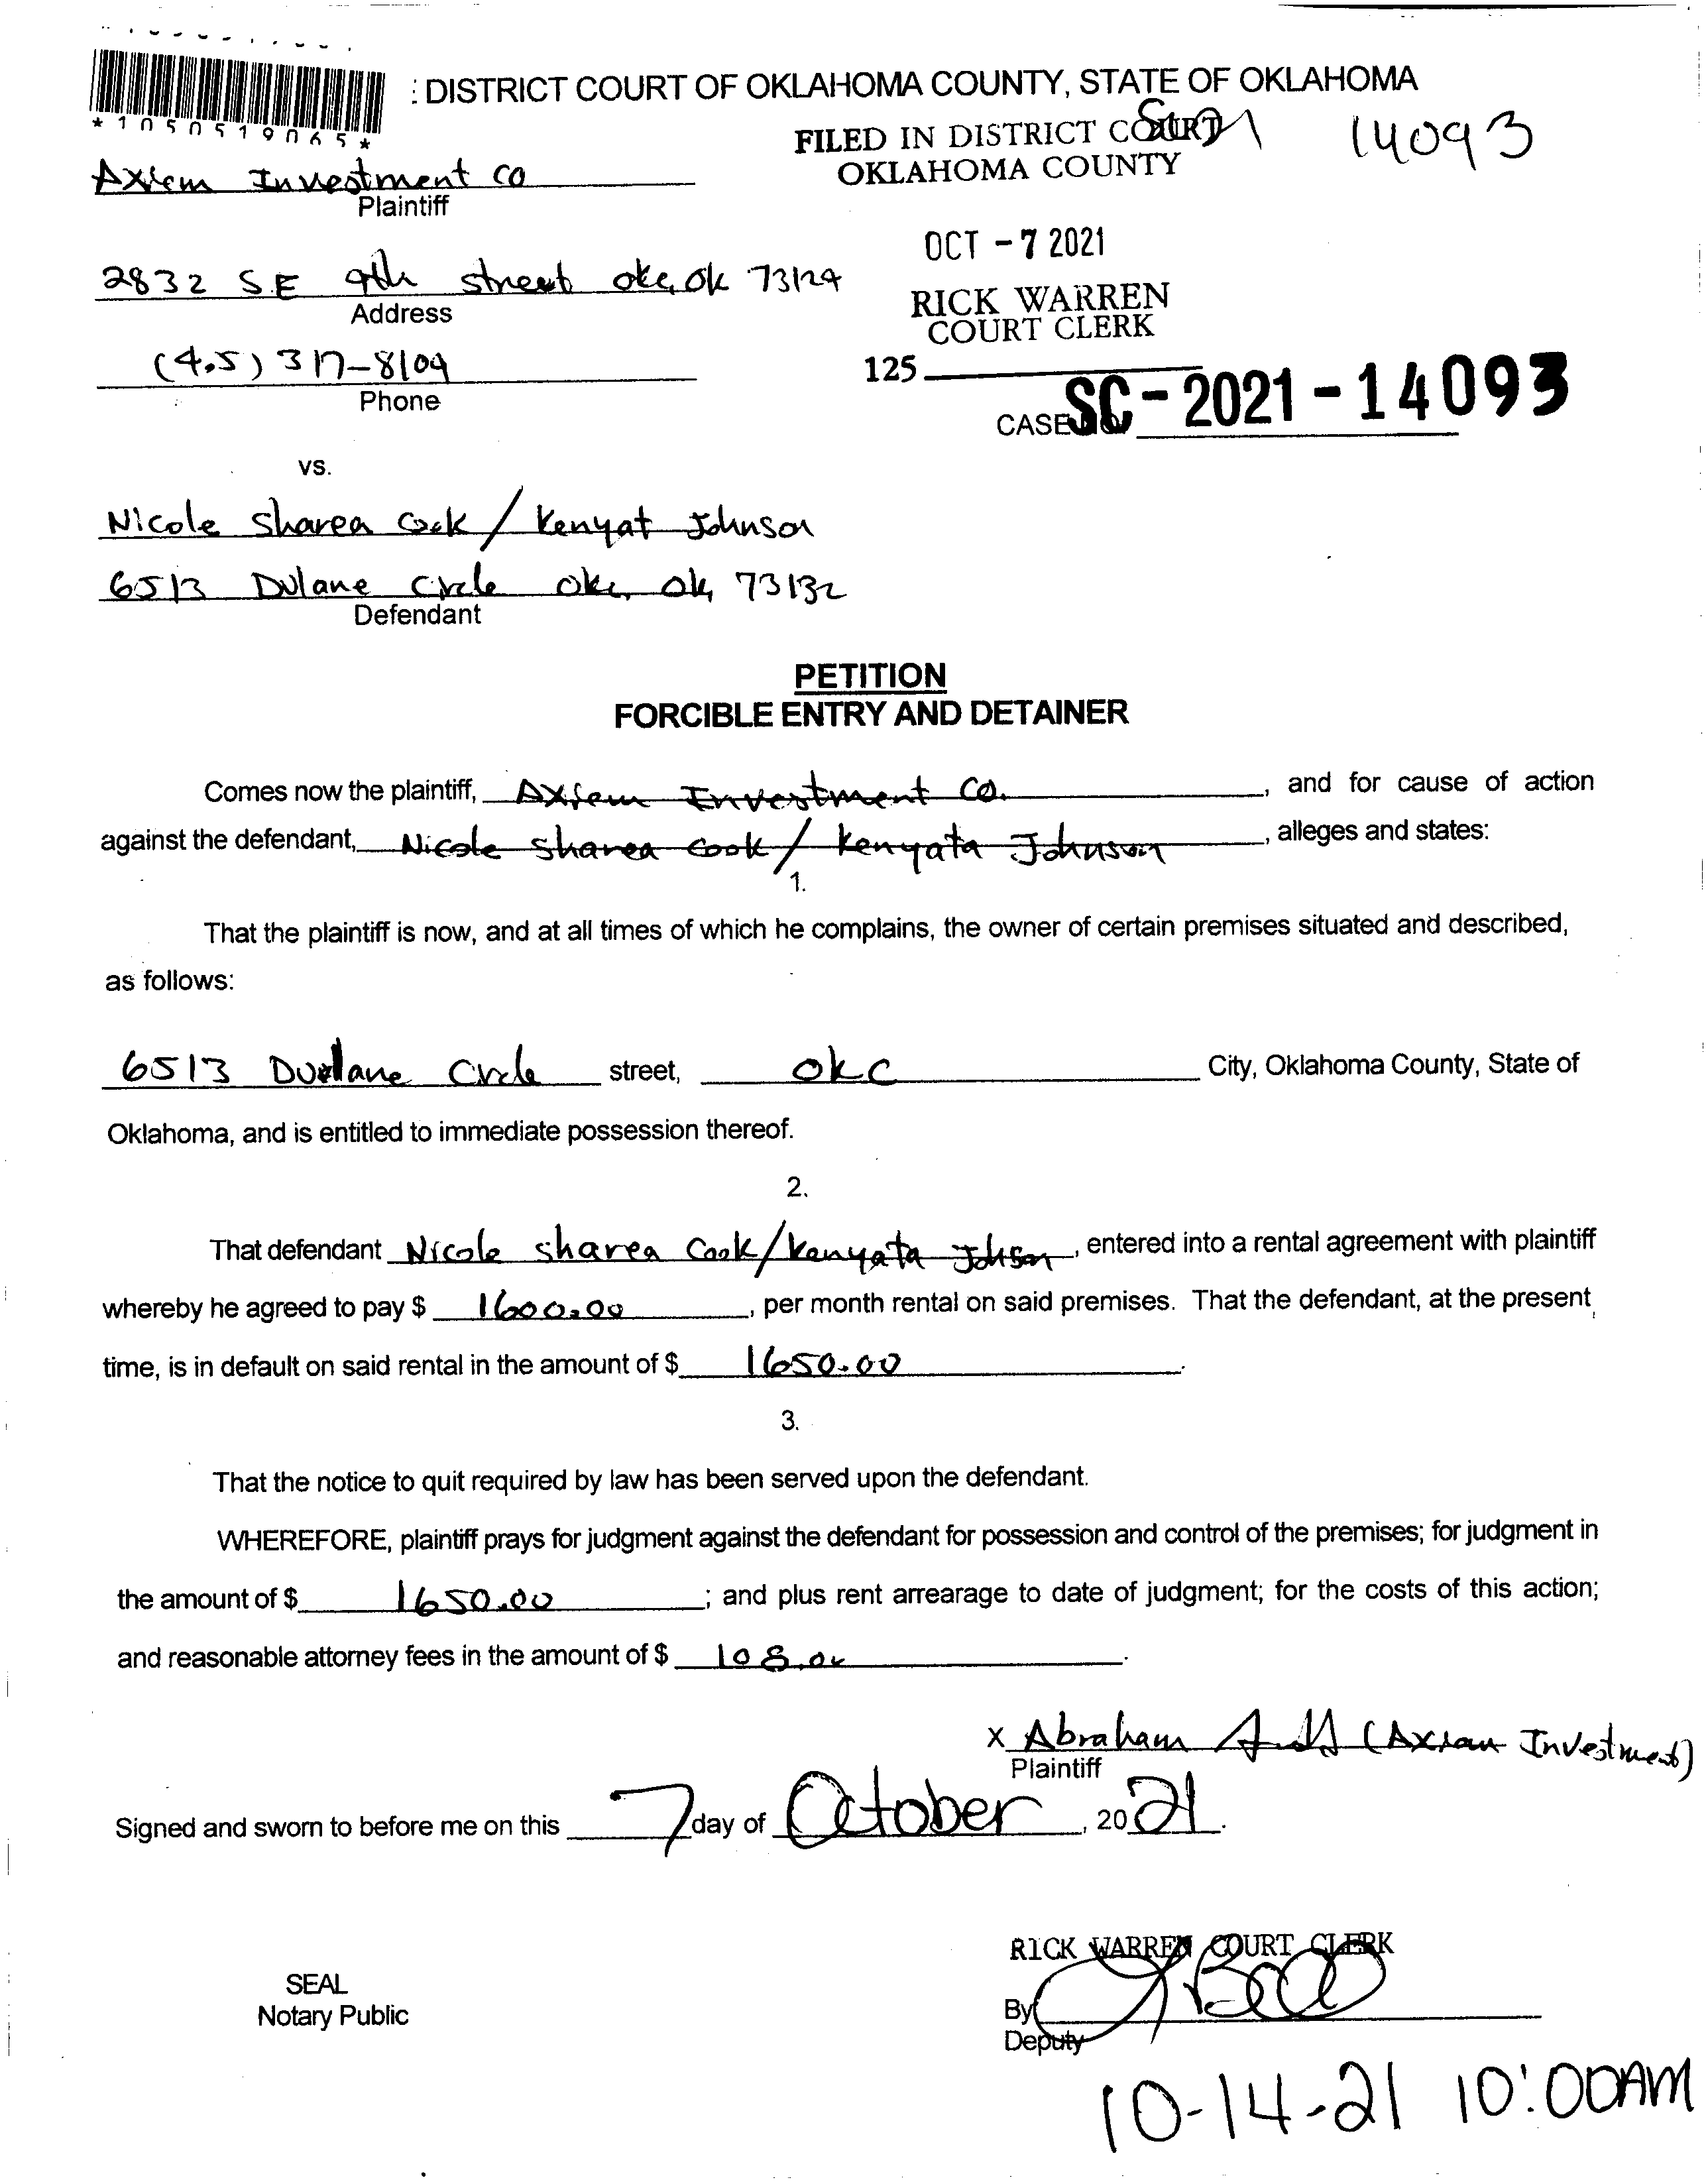 : DISTRICT COURT OF OKLAHOMA COUNTY, STATE OF OKLAHOMA
*1050519065*
FILED IN DISTRICT COURT
OKLAHOMA COUNTY
14093
Axiem Investment co
Plaintiff
OCT - 7 2021
2832 S.E 9th street okc, ok 73129
Address
RICK WARREN
COURT CLERK
317-8109
Phone
125
CASE SC-2021-14093
vs.
Nicole Sharea Cook / Kenyat Johnson
6513 Dulane Circle Okc, Ok, 73132
Defendant
PETITION
FORCIBLE ENTRY AND DETAINER
Comes now the plaintiff, Axiem Investment Co. , and for cause of action
against the defendant, Nicole sharea cook / Kenyata Johnson , alleges and states:
1.
That the plaintiff is now, and at all times of which he complains, the owner of certain premises situated and described,
as follows:
6513 Dulane Circle street, okc City, Oklahoma County, State of
Oklahoma, and is entitled to immediate possession thereof.
2.
That defendant Nicole sharea Cook/Kenyata Johson , entered into a rental agreement with plaintiff
whereby he agreed to pay $ 1600.00 , per month rental on said premises. That the defendant, at the present
time, is in default on said rental in the amount of $ 1650.00 .
3.
That the notice to quit required by law has been served upon the defendant.
WHEREFORE, plaintiff prays for judgment against the defendant for possession and control of the premises; for judgment in
the amount of $ 1650.00 ; and plus rent arrearage to date of judgment; for the costs of this action;
and reasonable attorney fees in the amount of $ 108.00 .
x Abraham (Axiam Investment)
Plaintiff
Signed and sworn to before me on this 7 day of October , 20 21 .
RICK WARREN COURT CLERK
SEAL
Notary Public
By
Deputy
10-14-21 10:00AM